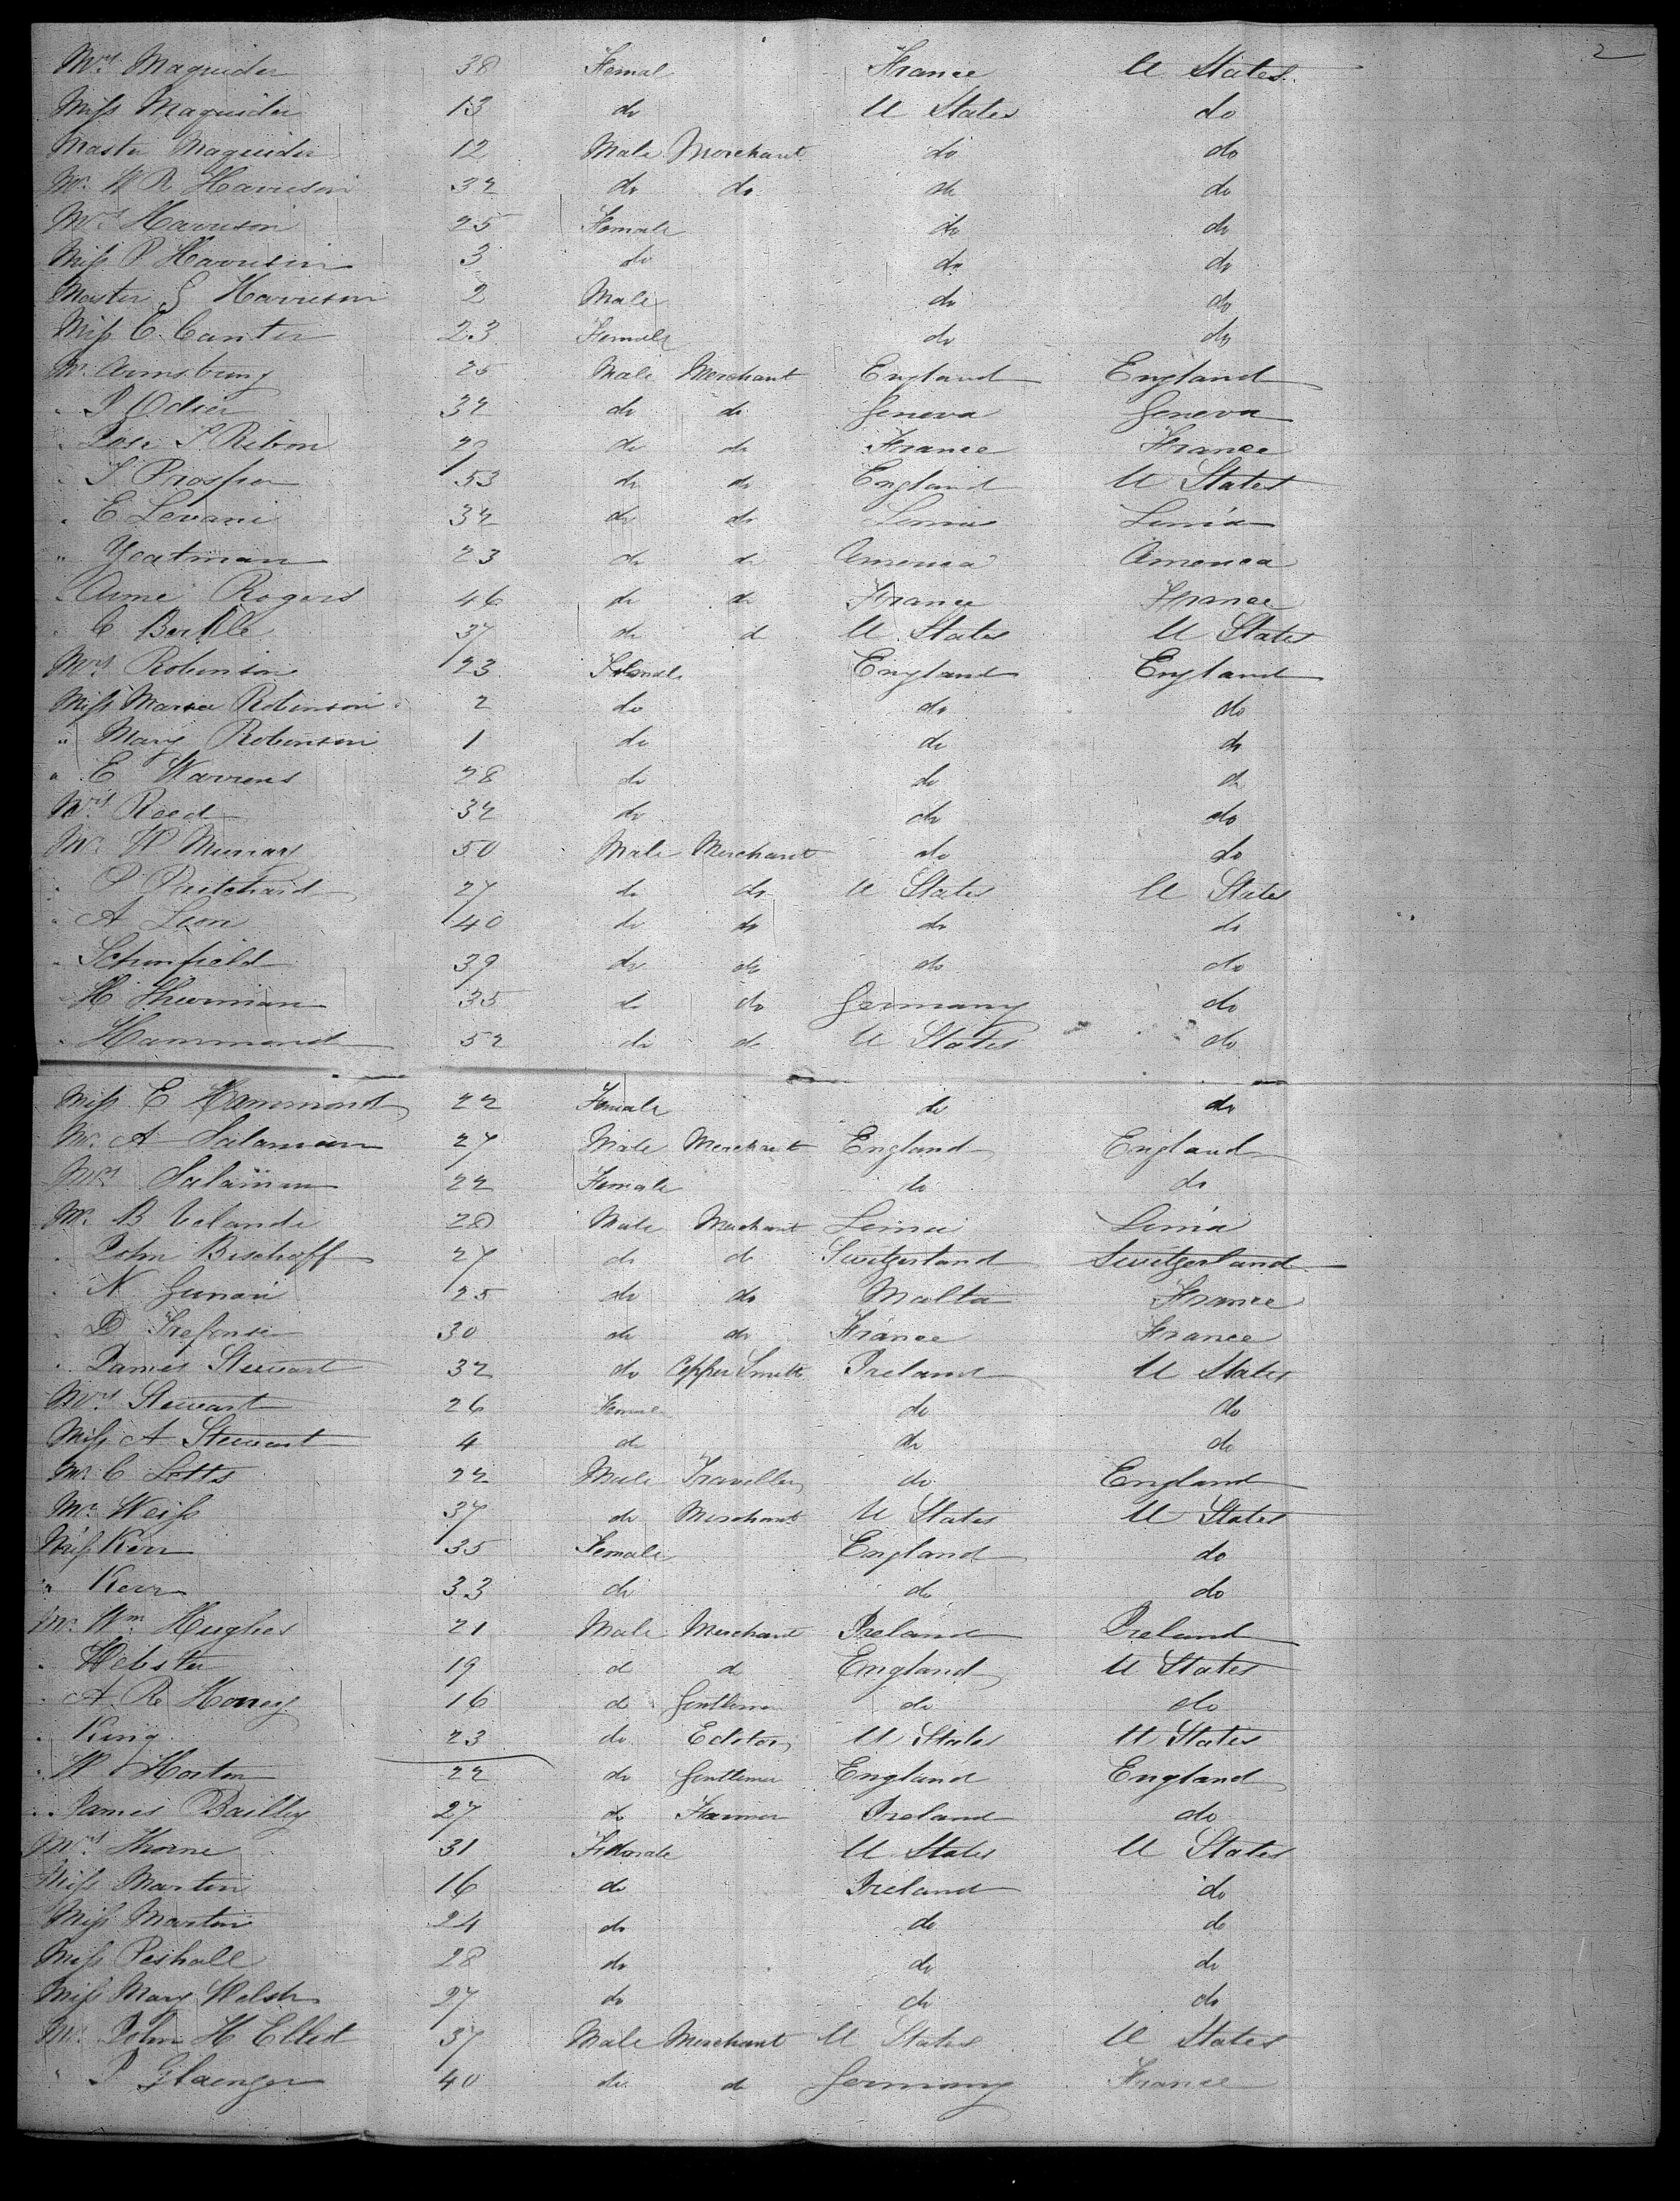 2
Mrs Maguider 38 Femal France U States
Miss Maguider 13 do U States do
Master Maguider 12 Male Merchant do do
Mr W R Harrison 32 do do do do
Mrs Harrison 25 Female do do
Miss P Harrison 3 do do do
Master G Harrison 2 Male do do
Miss C Canter 23 Female do do
Mr Armstrong 25 Male Merchant England England
" P Odier 32 do do Geneva Geneva
" Jose S Ribon do do France France
" J Prosper 53 do do England U States
" E Levani 32 do do Lima Lima
" Yeatman 23 do do America America
" Aime Rogers 46 do do France France
" C 37 do d U States U States
Mrs Robinson 23 Female England England
Miss Maria Robinson 2 do do do
" Mary Robinson 1 do do do
" E Warrens 28 do do do
Mrs Reed 32 do do do
Mr W Murray 50 Male Merchant do do
" P Pritchard 27 do do U States U States
" A Leon 40 do do do do
" Schonfield 39 do do do do
" H Thurman 35 do do Germany do
" Hammond 52 do do U States do
Miss E Hammond 22 Female do do
Mr A Salaman 27 Male Merchant England England
Mrs Salaman 22 Female do do
Mr B Velande 28 Male Merchant Lima Lima
" John Bischoff 27 do do Switzerland Switzerland
" N Gunari 25 do do Malta France
" D Trefonse 30 do do France France
" James Stewart 32 do Copper Smith Ireland U States
Mrs Stewart 26 Female do do
Miss A Stewart 4 do do do
Mr C Lotts 22 Male Traveller do England
Mr Weiss 37 do Merchant U States U States
Miss Kerr 35 Female England do
" Kerr 33 do do do
Mr Wm Hughes 21 Male Merchant Ireland Ireland
" Webster 19 d d England U States
" A R Honey 16 d Gentleman do do
" King 23 do Editor U States U States
" W Horton 22 do Gentleman England England
" James Bailley 27 do Farmer Ireland do
Mrs Thorne 31 Female U States U States
Miss Martin 16 do Ireland do
Miss Martin 24 do do do
Miss Peshall 28 do do do
Miss Mary Welsh 27 do do do
Mr John H Elliot 37 Male Merchant U States U States
" P Glaenzer 40 do do Germany France